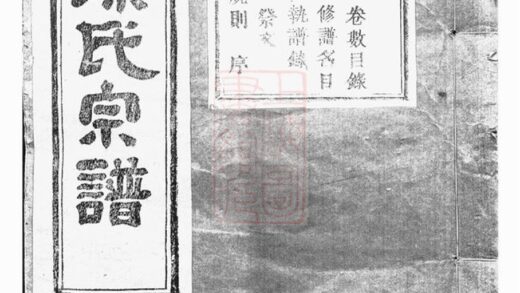 卷數目錄
修譜名目
執譜錄
祭文
規則 序
氏宗譜